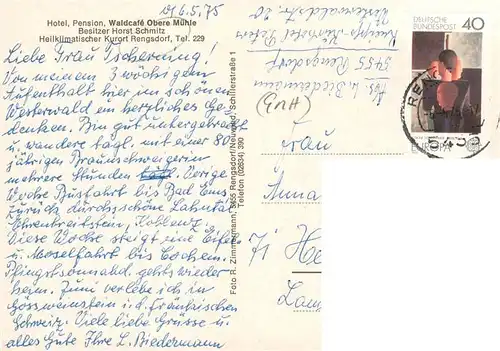 d. 6.5.75
Hotel, Pension, Waldcafé Obere Mühle
Besitzer Horst Schmitz
Heilklimatischer Kurort Rengsdorf, Tel. 229
Liebe Frau Tscherning!
Von meinem 3 wöchigen
Aufenthalt hier im schönen
Westerwald ein herzliches Ge-
denken. Bin gut untergebracht
u. wandere tägl. mit einer 80
jährigen Braunschweigerin
mehrere Stunden. Vorige
Woche Busfahrt bis Bad Ems
zurück durchs schöne Lahntal
Ehrenbreitstein, Koblenz.
Diese Woche steigt eine Eifel
u. Moselfahrt bis Cochem.
Pfingstsonnabd. gehts wieder
heim. Juni verlebe ich in
Gössweinstein i. d. Fränkischen
Schweiz. Viele liebe Grüsse u.
alles Gute Ihre L. Biedermann
Foto R. Zimmermann, 5455 Rengsdorf/Neuwied, Schillerstraße 1
Telefon (02634) 390
Abs. L. Biedermann
5455 Rengsdorf
Westerwaldstr. 20
DEUTSCHE
BUNDESPOST
40
545
Frau
Anna
71 He
Lam